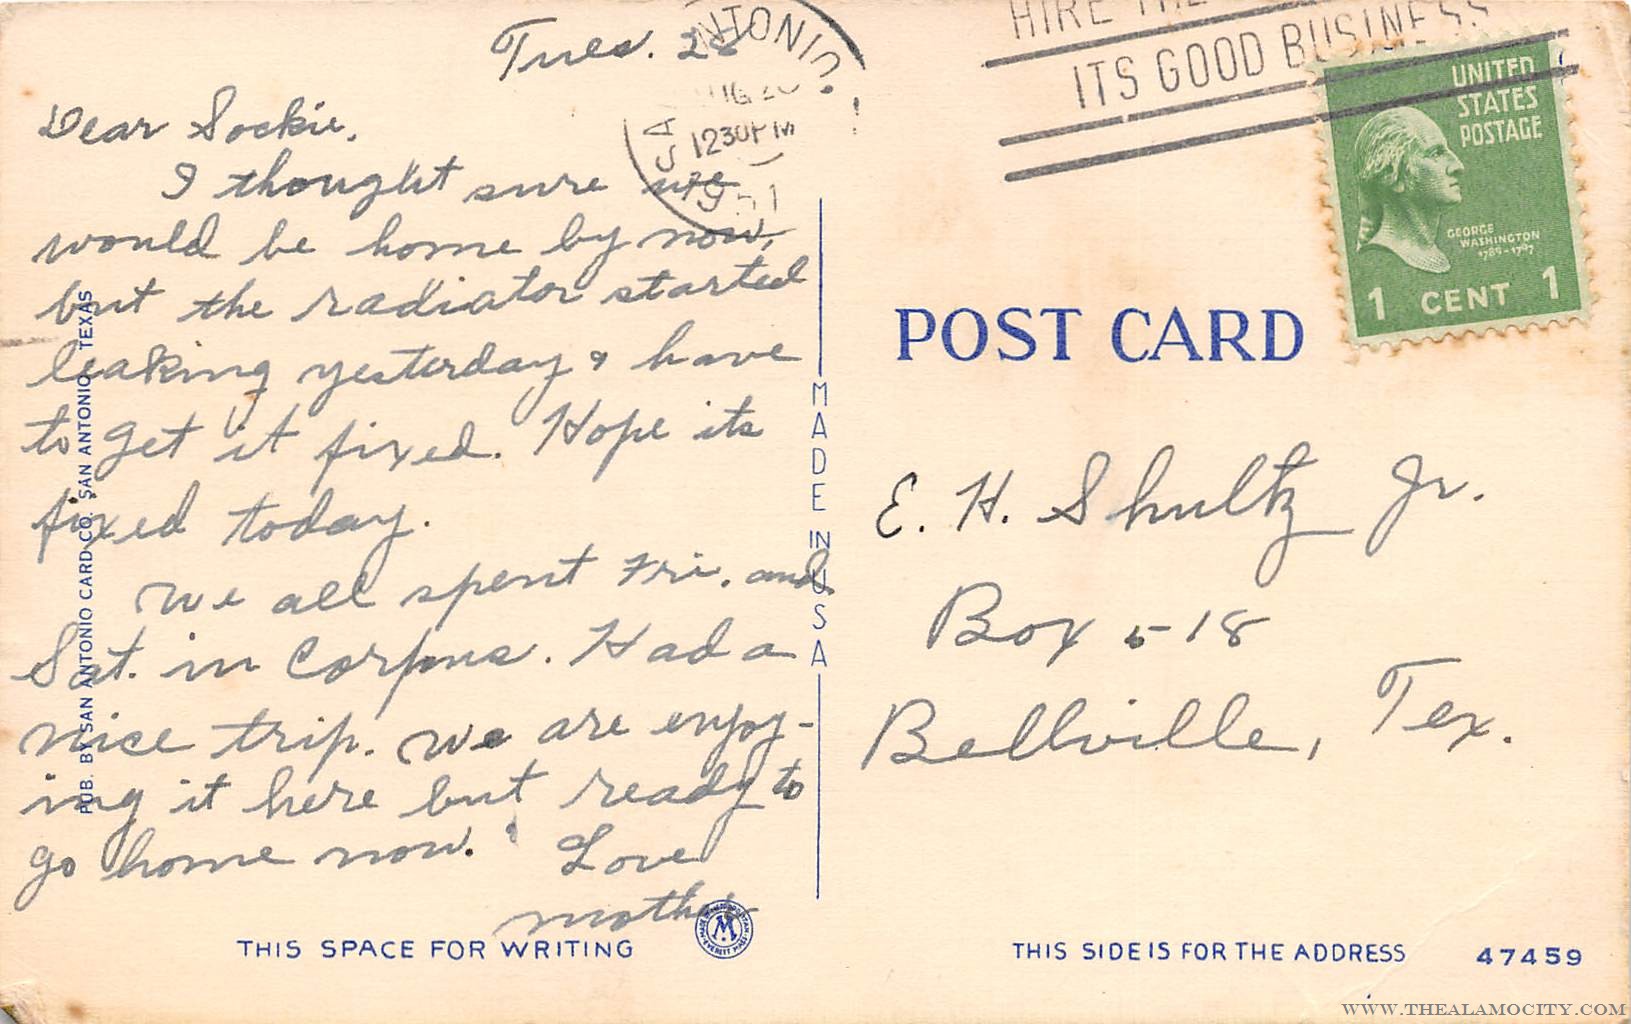 Tues. 28
Dear Sockie,
I thought sure we
would be home by now,
but the radiator started
leaking yesterday & have
to get it fixed. Hope its
fixed today.
We all spent Fri. and
Sat. in Corpus. Had a
nice trip. We are enjoy-
ing it here but ready to
go home now. Love
Mother
THIS SPACE FOR WRITING
PUB. BY SAN ANTONIO CARD CO. SAN ANTONIO, TEXAS
MADE IN USA
SAN ANTONIO
12 30 PM
HIRE THE
ITS GOOD BUSINESS
UNITED
STATES
POSTAGE
GEORGE
WASHINGTON
1789-1797
1 CENT 1
POST CARD
E. H. Shultz Jr.
Box 518
Bellville, Tex.
THIS SIDE IS FOR THE ADDRESS
47459
WWW.THEALAMOCITY.COM